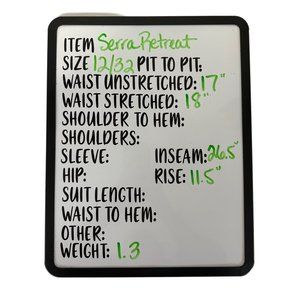 ITEM Serra Retreat
SIZE 12/32 PIT TO PIT:
WAIST UNSTRETCHED: 17"
WAIST STRETCHED: 18"
SHOULDER TO HEM:
SHOULDERS:
SLEEVE: INSEAM: 26.5"
HIP: RISE: 11.5"
SUIT LENGTH:
WAIST TO HEM:
OTHER:
WEIGHT: 1.3